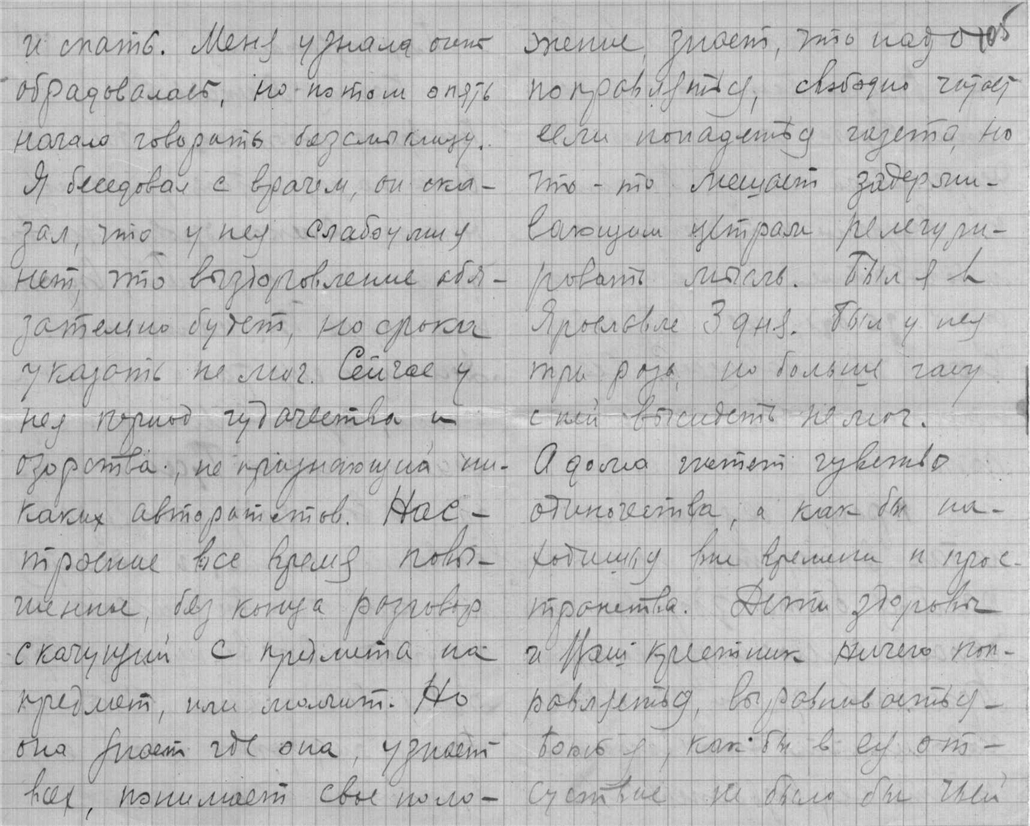 и спать. Меня узнала очень
обрадовалась, но потом опять
начала говорить безсмыслицу.
Я беседовал с врачем, он ска-
зал, что у нея слабоумия
нет, что выздоровление обя-
зательно будет, но срока
указать не мог. Сейчас у
нея период чудачества и
озорства, не признающий ни-
каких авторитетов. Нас-
троение все время повы-
шенное, без конца разговор
скачущий с предмета на
предмет, или молчит. Но
она знает где она, узнает
всех, понимает свое поло-
105
жение, знает, что надо
поправляться, свободно читает
если попадеться газета, но
что-то мешает задержи-
вающим центрам регули-
ровать мысль. Был я в
Ярославле 3 дня. Был у нея
три раза, но больше часу
с ней высидеть не мог.
А дома гнетет чувство
одиночества, а как бы на-
ходишься вне времени и прос-
транства. Дети здоровы
и Ваш крестник ничего поп-
равляеться, выравниваеться
боюсь я, как бы в ея от-
сутствие не было бы